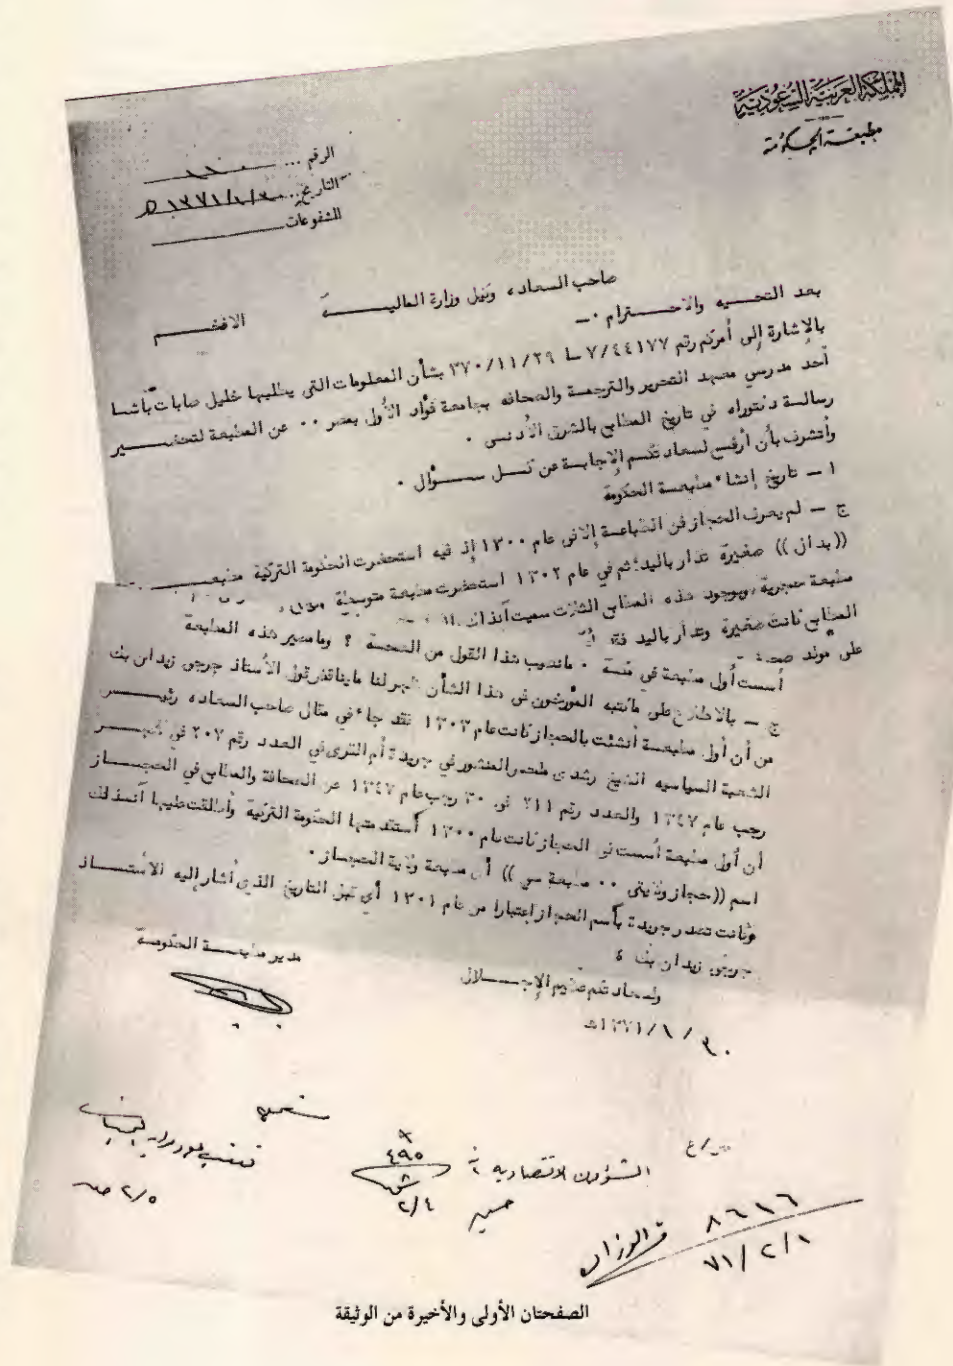 المملكة العربية السعودية
مطبعة الحكومة
الرقم ... ١١٠٠
التاريخ ... ١٣٧١/١/٣٠ ه
المشفوعات
صاحب السعادة وكيل وزارة المالية الافخم
بعد التحيه والاحترام ٠ـ
بالإشارة إلى أمركم رقم ٧/٤٤١٧٧ ٣٧٠/١١/٢٩ بشأن المعلومات التي يطلبها خليل صابات باشا
أحد مدرسي معهد التحرير والترجمة والصحافه بجامعة فؤاد الأول بمصر ٠٠ عن المطبعة لتحضير
رسالة دكتوراه في تاريخ المطابع بالشرق الأدنى ٠
وأتشرف بأن أرفع لسعادتكم الإجابة عن كل سؤال ٠
١ ـ تاريخ إنشاء مطبعة الحكومة
ج ـ لم يعرف الحجاز فن الطباعة إلا في عام ١٣٠٠ إذ فيه استحضرت الحكومة التركية مطبعة
((بدال)) صغيرة تدار باليد؛ ثم في عام ١٣٠٢ استحضرت مطبعة متوسطة
مطبعة حجرية وبوجود هذه المطابع الثلاث سميت آنذاك
المطابع كانت صغيرة وتدار باليد فقد
على مولد
أسست أول مطبعة في مكة ٠ ماندوب هذا القول من الصحة ؟ وما مصير هذه المطبعة
ج ـ بالاطلاع على ماكتبه المؤرخون في هذا الشأن ظهر لنا ما يناقض قول الأستاذ جرجي زيدان بك
من أن أول مطبعة أنشئت بالحجاز كانت عام ١٣٠٣ فقد جاء في مقال صاحب السعاده رئيس
الشعبة السياسيه الشيخ رشدى ملحس المنشور في جريدة أم القرى في العدد رقم ٢٠٧ في
رجب عام ١٣٤٧ والعدد رقم ٢١١ في ٣٠ رجب عام ١٣٤٧ عن الصحافة والمطابع في الحجاز
أن أول مطبعة أسست في الحجاز كانت عام ١٣٠٠ أستقدمتها الحكومة التركية وأطلقت عليها آنئذ
اسم ((حجاز ولايتى ٠٠ مطبعة سي )) أى مطبعة ولاية الحجاز ٠
وكانت تصدر جريدة بأسم الحجاز إعتبارا من عام ١٣٠١ أي قبل التاريخ الذي أشار إليه الأستاذ
جرجي زيدان بك ؛
ولسعادتكم عظيم الإجلال
مدير مطبعة الحكومة
١٣٧١/١/٣٠هـ
الشؤون الاقتصاديه
٤٩٥
٢/٤
٢/٥
٨٦١٦
٧١/٢/١
الصفحتان الأولى والأخيرة من الوثيقة